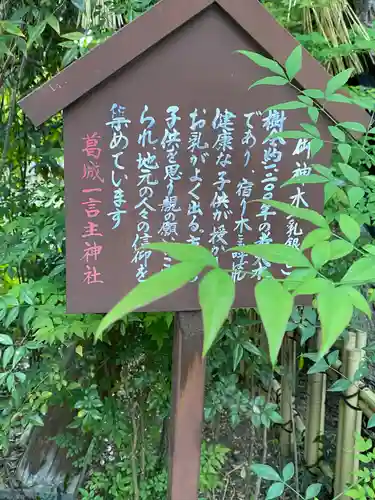 御神木(乳銀
樹令約一二〇〇の老木
であり、宿り木呼
健康な子供が授か
お乳がよく出る、
子供を思う親の願い
られ、地元の人々の信仰を
集めています
葛城一言主神社